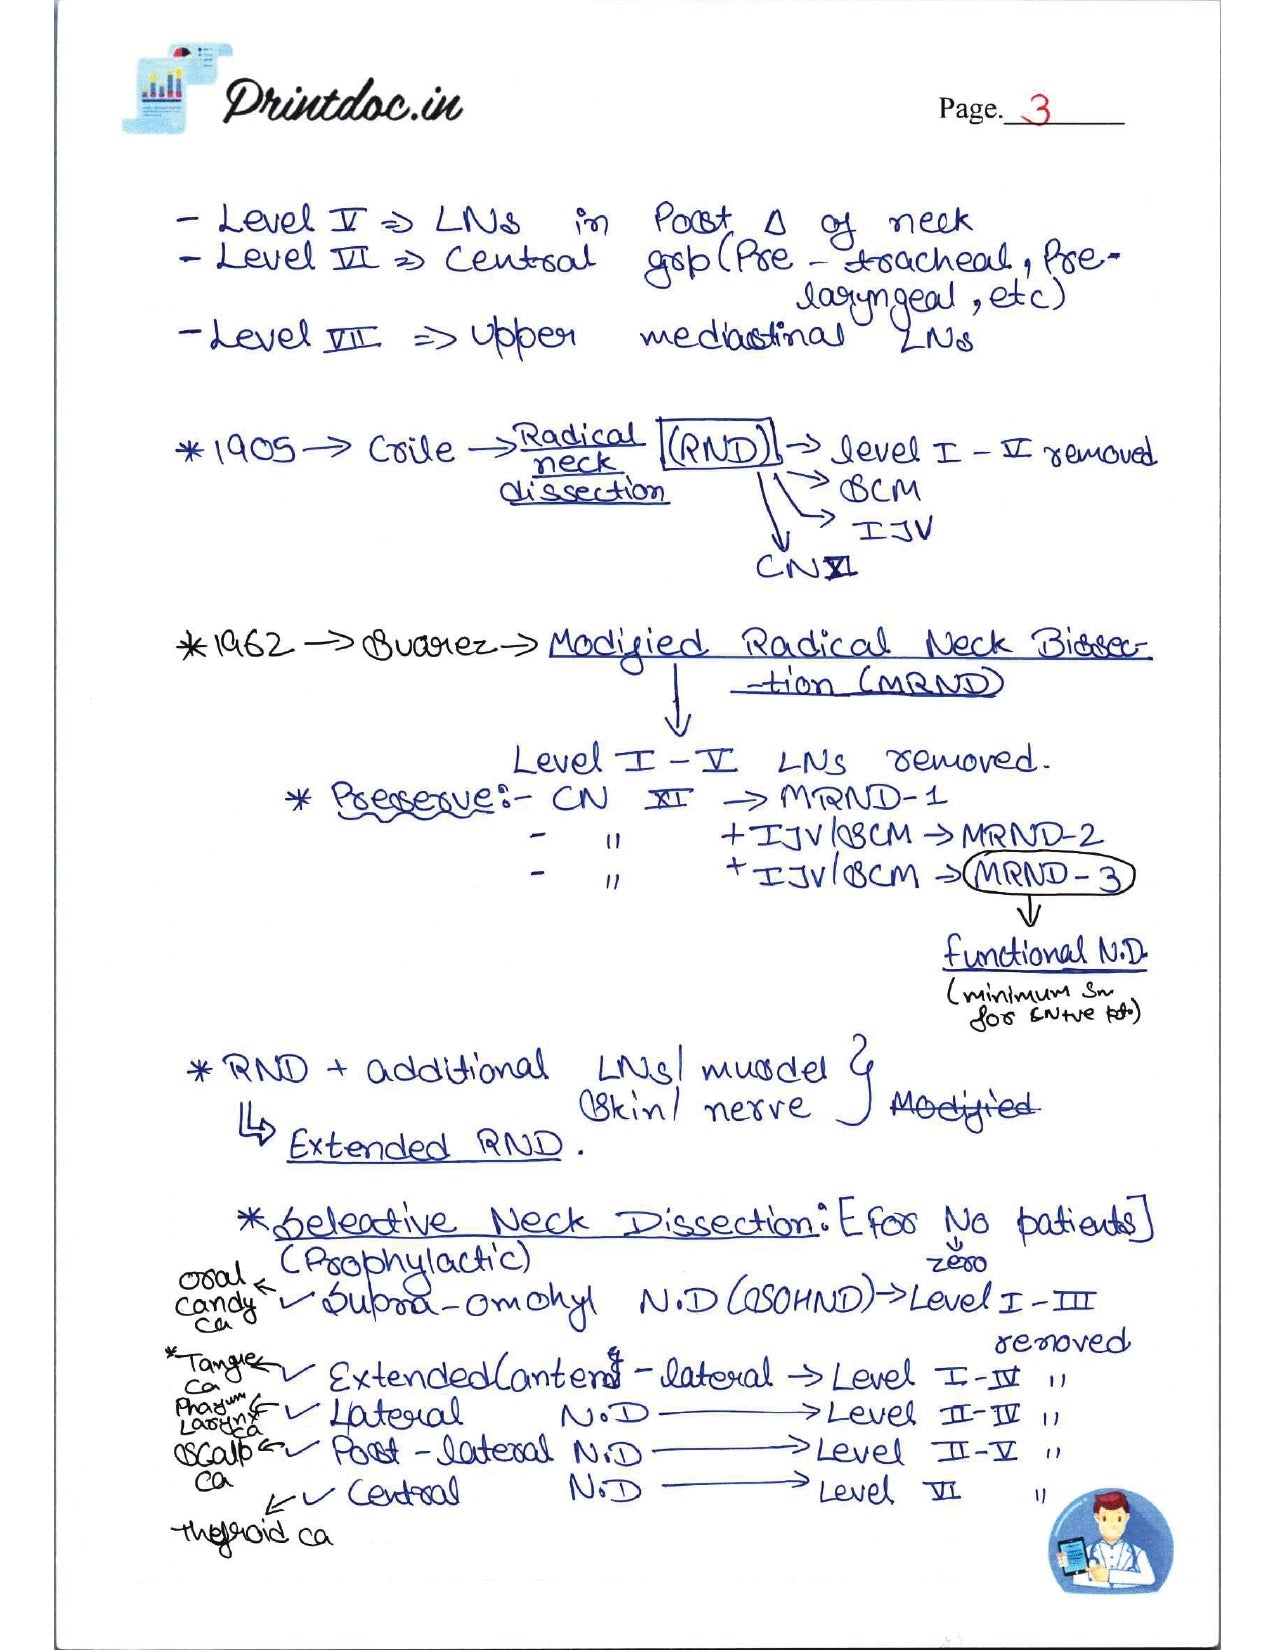 Printdoc.in
Page. 3
- Level V => LNs in Post Δ of neck
- Level VI => Central grp (Pre - tracheal, Pre-
laryngeal, etc)
- Level VII => Upper mediastinal LNs
* 1905 → Crile → Radical neck dissection (RND) → level I - V removed
→ SCM
→ IJV
CN XI
* 1962 → Suarez → Modified Radical Neck Dissec-
-tion (MRND)
Level I - V LNs removed.
* Preserve:- CN XI → MRND-1
- " + IJV/SCM → MRND-2
- " + IJV/SCM → MRND-3
functional N.D.
(minimum Sx
for CN+ve pt.)
* RND + additional LNs/ muscle/
Skin/ nerve } Modified
↳ Extended RND.
* Selective Neck Dissection: [for No patients]
(Prophylactic) zero
oral candy ca ← ✓ Supra-omohyl N.D (SOHND) → Level I - III
removed
* Tangue ca ← ✓ Extended (anterio - lateral → Level I-IV "
Pharynx Larynx ca ← ✓ Lateral N.D → Level II-IV "
Scalp ca ← ✓ Post-lateral N.D → Level II-V "
✓ Central N.D → Level VI "
thyroid ca